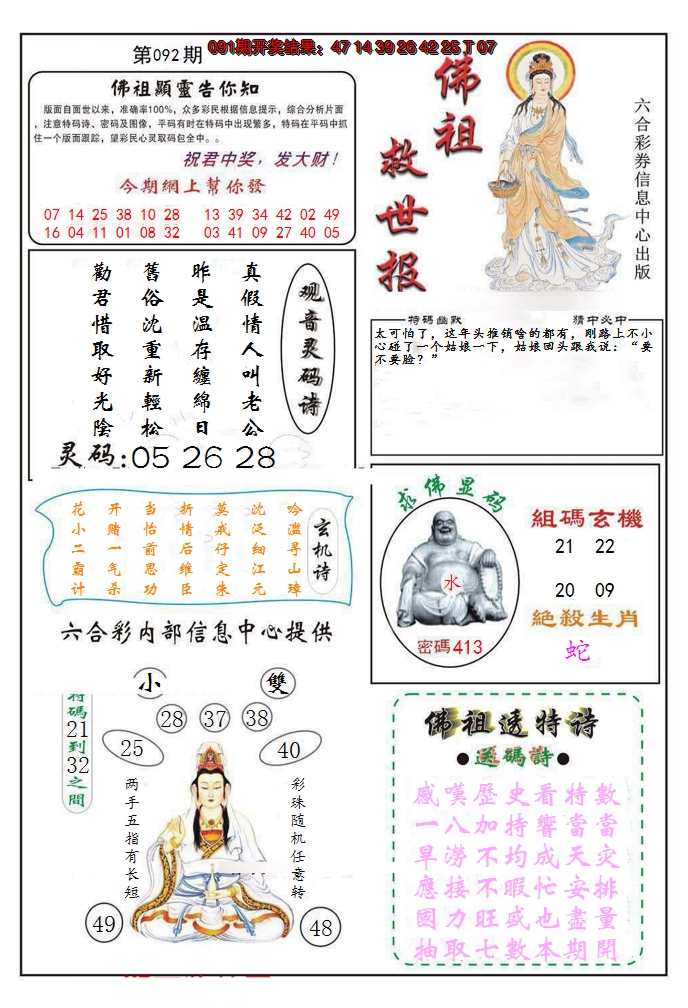 第092期
091期开奖结果：47 14 39 26 42 25 T 07
佛祖顯靈告你知
版面自面世以来，准确率100%，众多彩民根据信息提示，综合分析片面
，注意特码诗、密码及图像，平码有时在特码中出现繁多，特码在平码中抓
住一个版面跟踪，望彩民心灵取码包全中。。
祝君中奖，发大财！
今期網上幫你發
07 14 25 38 10 28 13 39 34 42 02 49
16 04 11 01 08 32 03 41 09 27 40 05
佛祖
救世报
六合彩券信息中心出版
观音灵码诗
真假情人叫老公
昨是温存纏綿日
舊俗沈重新輕松
勸君惜取好光陰
灵码:05 26 28
特碼幽默
猜中必中
太可怕了，这年头推销啥的都有，刚路上不小
心碰了一个姑娘一下，姑娘回头跟我说：“要
不要脸？”
玄机诗
吟滥寻山璋
沈泛细江元
莫戒仔定朱
折情后维臣
当怡前思功
开赌一气杀
花小二霸计
六合彩内部信息中心提供
求佛显码
水
密碼413
组碼玄機
21 22
20 09
絶殺生肖
蛇
小
雙
特碼21到32之間
28
37
38
25
40
两手五指有长短
彩珠随机任意转
49
48
佛祖透特诗
●送碼詩●
感嘆歷史看特數
一八加持響當當
旱澇不均成天灾
應接不暇忙安排
國力旺盛也盡量
抽取七數本期開